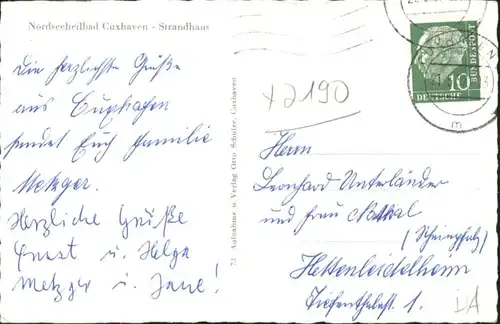 Nordseeheilbad Cuxhaven - Strandhaus
Die herzlichsten Grüße
aus Cuxhafen
sendet Euch Familie
Metzger.
Herzliche Grüße
Ernst u. Helga
Metzger u. Jane!
73 Aufnahme u. Verlag Otto Schulze, Cuxhaven
x 2190
10
DEUTSCHE BUNDESPOST
m
Herrn
Leonhard Unterländer
und Frau
(Rheinpfalz)
Hettenleidelheim
Tiefenthalerst. 1.